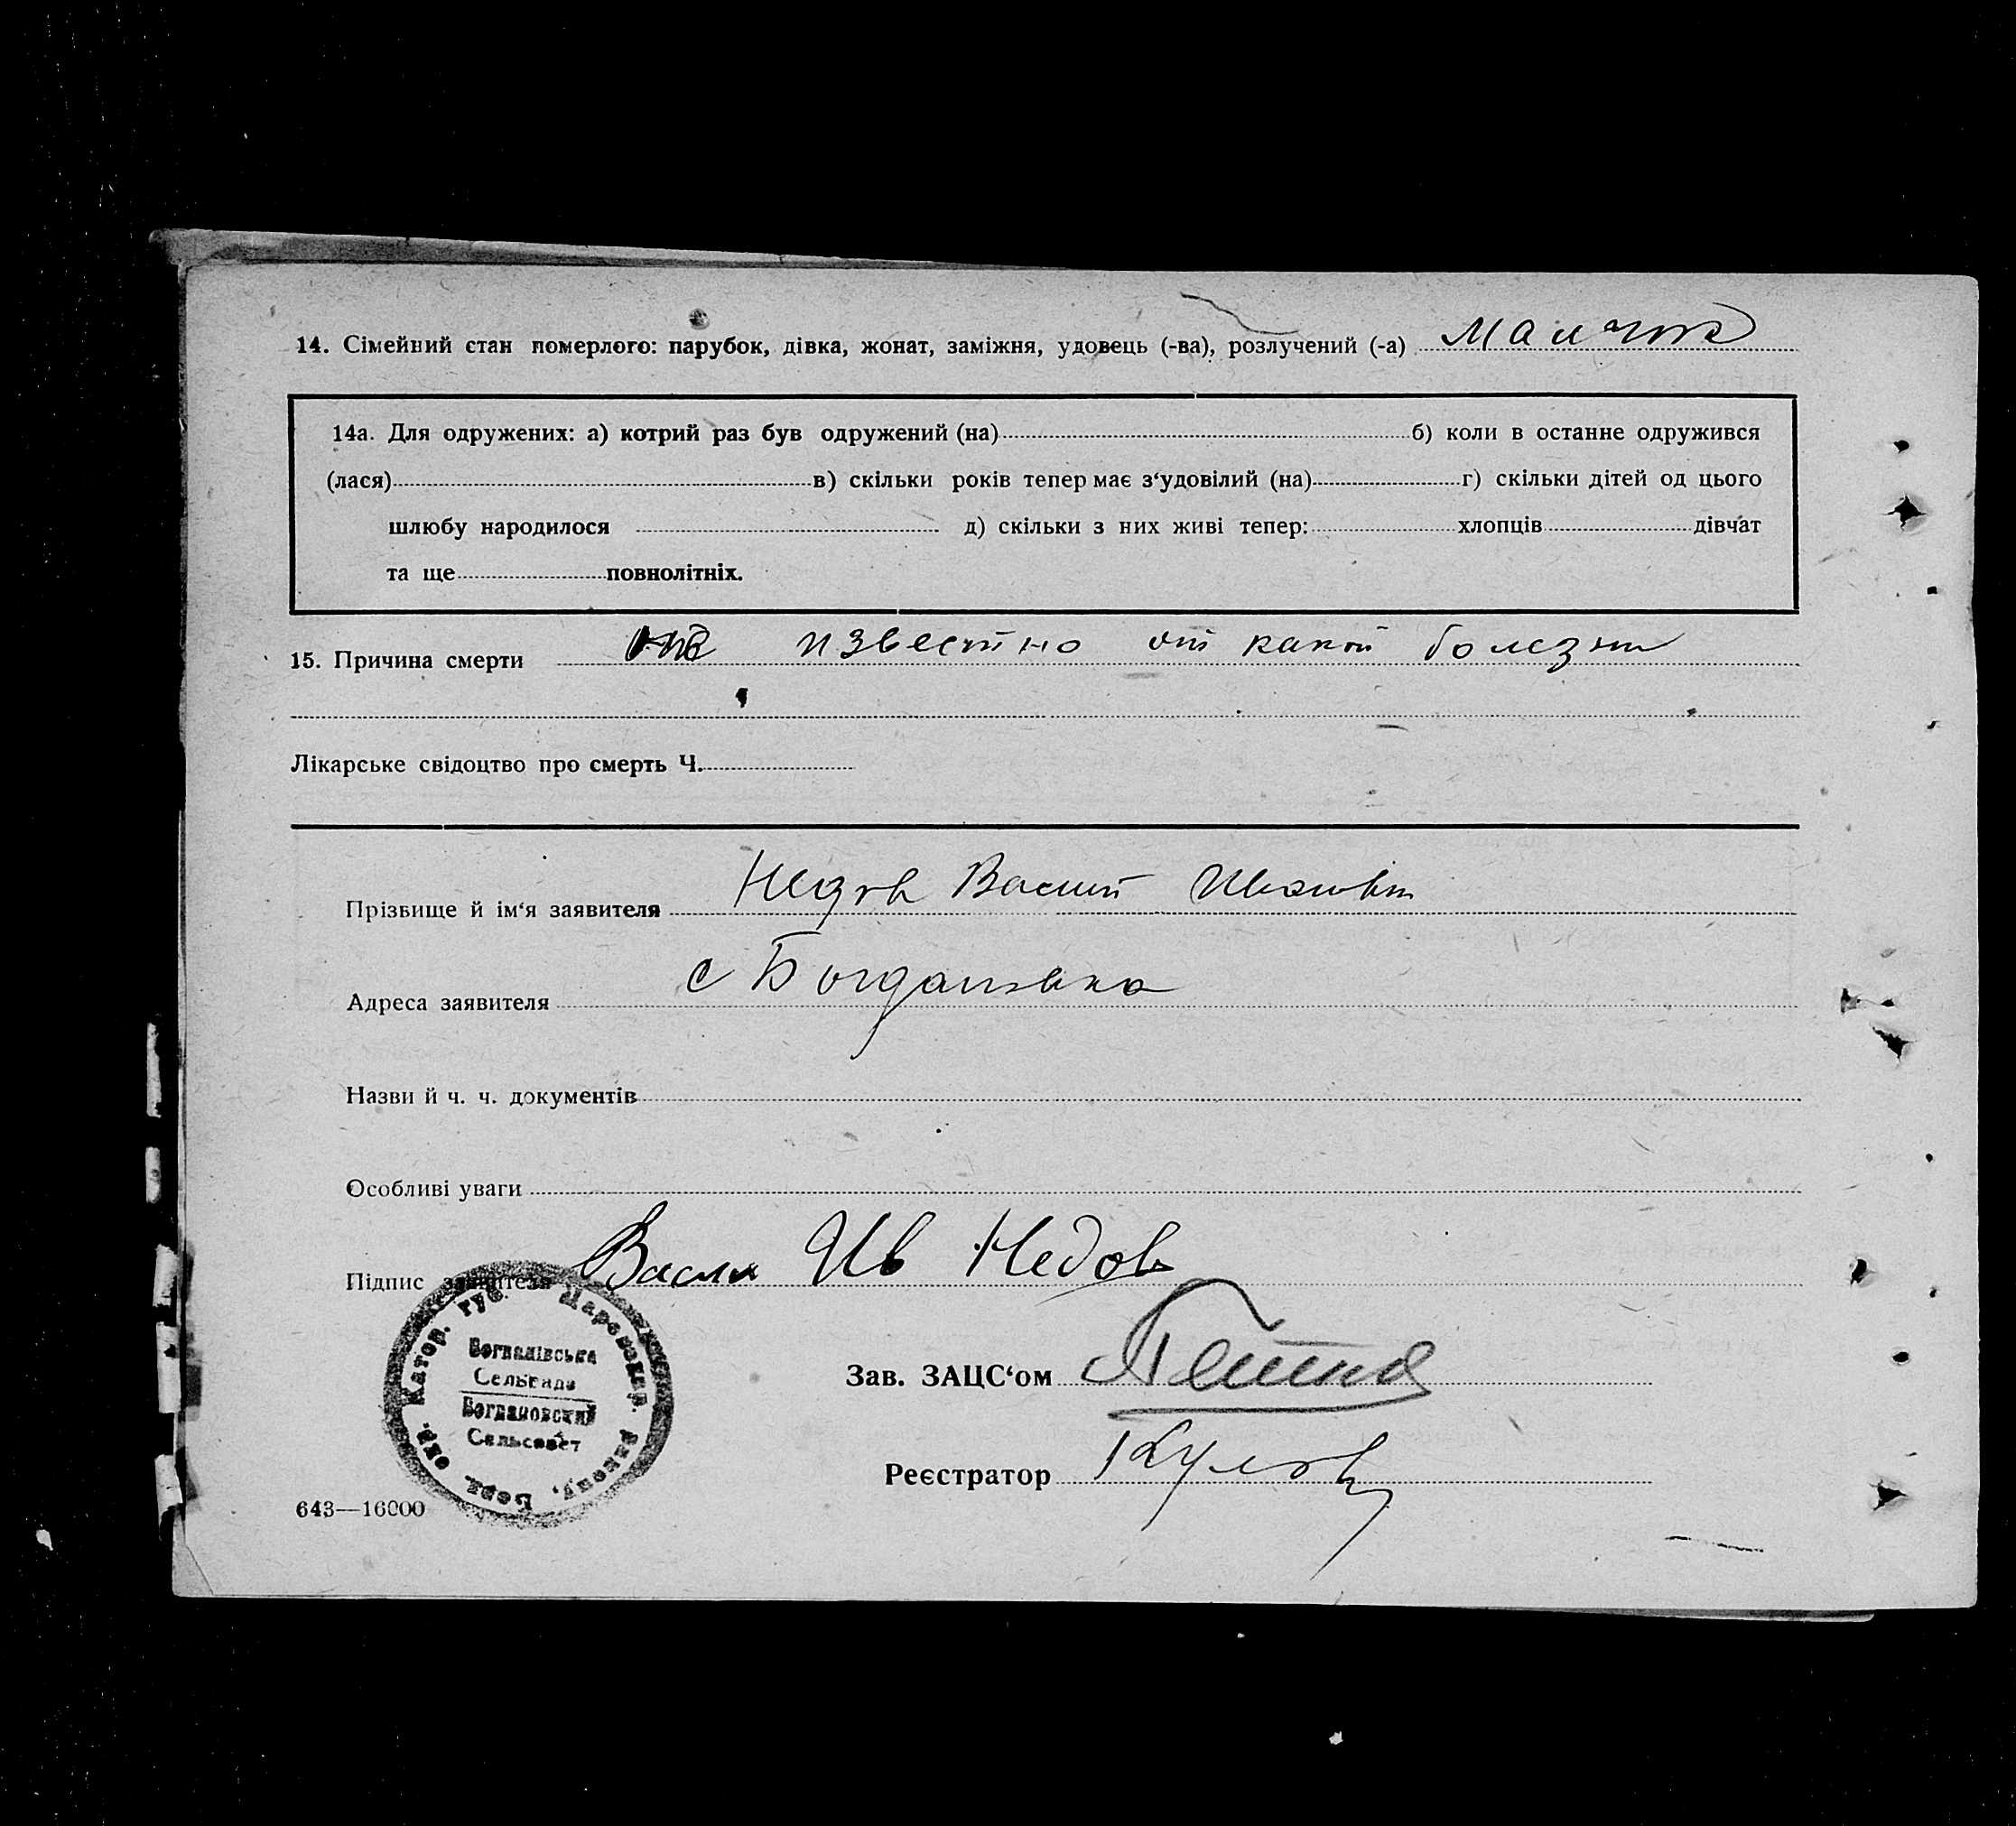 14. Сімейний стан померлого: парубок, дівка, жонат, заміжня, удовець (-ва), розлучений (-а)
14а. Для одружених: а) котрий раз був одружений (на) б) коли в останне одружився
(лася) в) скільки років тепер має з‘удовілий (на) г) скільки дітей од цього
шлюбу народилося д) скільки з них живі тепер: хлопців дівчат
та ще повнолітніх.
15. Причина смерти не известно от какой болезни
Лікарське свідоцтво про смерть Ч.
Прізвище й ім‘я заявителя Недов Василий Иванович
Адреса заявителя с Богдановка
Назви й ч. ч. документів
Особливі уваги
Підпис заявителя Васил Ив Недов
Катер. губ. Бердянск. окр.
Богданівська
Сельрада
Богдановский
Сельсовет
Зав. ЗАЦС‘ом
Реєстратор
643—16000